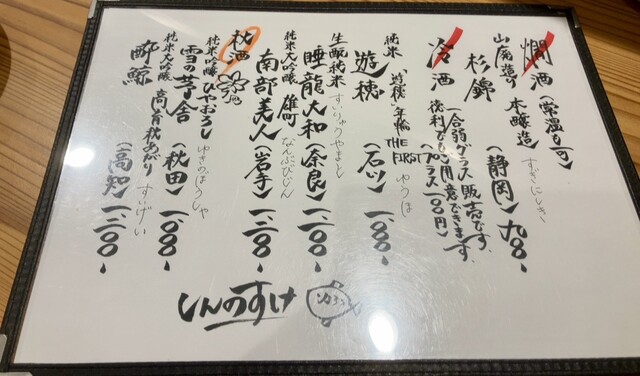 燗酒（常温も可）
山廃造り 本醸造 すぎにしき
杉錦（静岡）九八〇、
冷酒 一合弱グラス販売です。
徳利でもご用意できます。
（プラス一〇〇円）
純米 「遊穂」年輪 THE FIRST ゆうほ
遊穂（石川）一、〇〇〇、
生酛純米 すいりゅうやまと
睡龍大和（奈良）一、二〇〇、
純米大吟醸 雄町 なんぶびじん
南部美人（岩手）一、二〇〇、
秋酒
純米吟醸 ひやおろし ゆきのぼうしゃ
雪の茅舎（秋田）一、〇〇〇、
純米大吟醸 高育秋あがり すいげい
酔鯨（高知）一、二〇〇、
しんのすけ